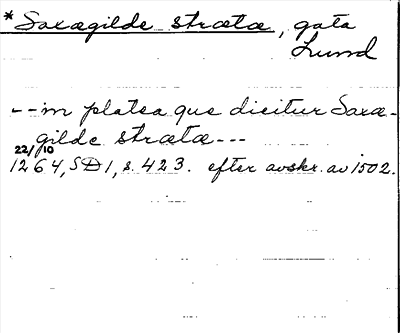 * Saxagilde stræta, gata
Lund
-- in platea que dicitur Saxa-
gilde stræta ---
22/10
1264, SD 1, s. 423. efter avskr. av 1502.